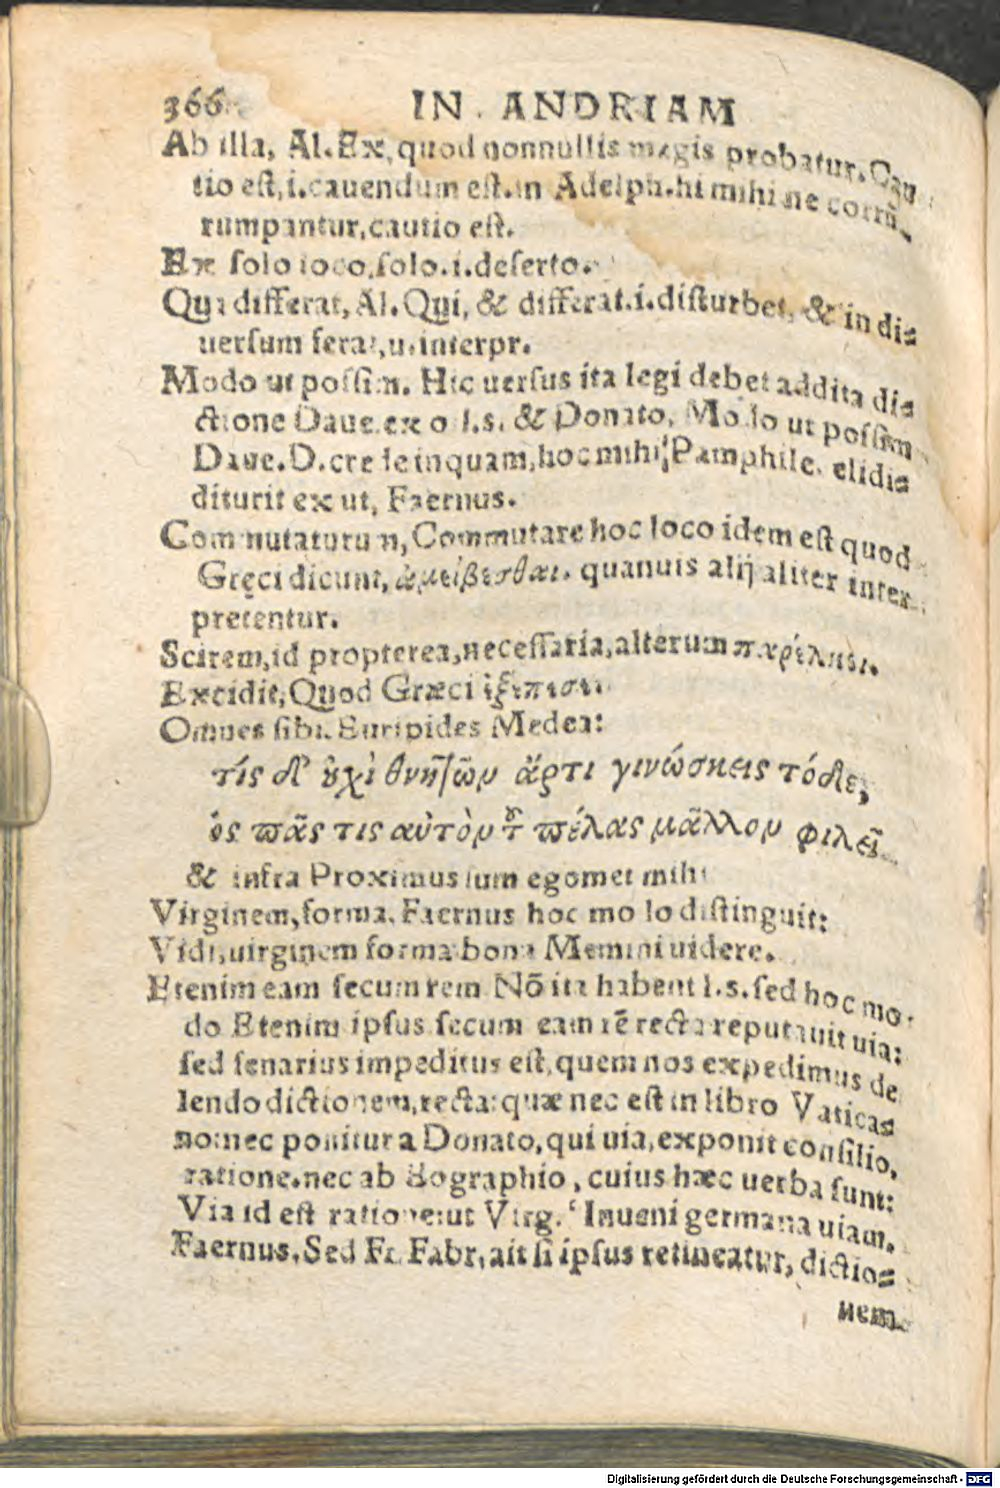 366 IN ANDRIAM
Ab illa, Al. Ex, quod nonnullis magis probatur. Cau
tio est, i. cauendum est. in Adelph. hi mihi ne corrū
rumpantur, cautio est.
Ex solo loco, solo. i. deserto.
Qui differat, Al. Qui, & differat. i. disturbet, & in di=
uersum ferat, u. interpr.
Modo ut possim. Hic uersus ita legi debet addita di=
ctione Daue. ex o l. s. & Donato, Modo ut possim
Daue. D. crede inquam, hoc mihi Pamphile. elidi=
diturit ex ut, Faernus.
Commutaturum, Commutare hoc loco idem est quod
Gręci dicunt, ἀμείβεσθαι. quanuis alij aliter inter
pretentur.
Scirem, id propterea, necessaria, alterum παρέλκει.
Excidit, Quod Græci ἐξέπεσεν.
Omnes sibi. Euripides Medea:
τίς δ' οὐχὶ θνητῶν ἄρτι γινώσκεις τόδε,
ὡς πᾶς τις αὑτὸν τοῦ πέλας μᾶλλον φιλεῖ.
& infra Proximus sum egomet mihi
Virginem, forma. Faernus hoc modo distinguit:
Vidi, uirginem forma bona Memini uidere.
Etenim eam secum rem Nō ita habent l. s. sed hoc mo
do Etenim ipsus secum eam rē recta reputauit uia:
sed senarius impeditus est, quem nos expedimus de
lendo dictionem, recta: quæ nec est in libro Vatica=
no: nec ponitur a Donato, qui uia, exponit consilio,
ratione. nec ab Eographio, cuius hæc uerba sunt:
Via id est ratione: ut Virg. Inueni germana uiam.
Faernus. Sed Fr. Fabr. ait si ipsus retineatur, dictio=
nem
Digitalisierung gefördert durch die Deutsche Forschungsgemeinschaft - DFG